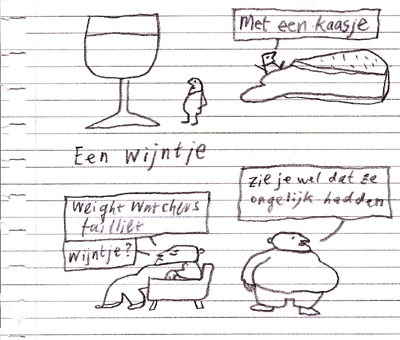 Met een kaasje
Een wijntje
Weight Watchers
failliet
Wijntje?
zie je wel dat ze
ongelijk hadden